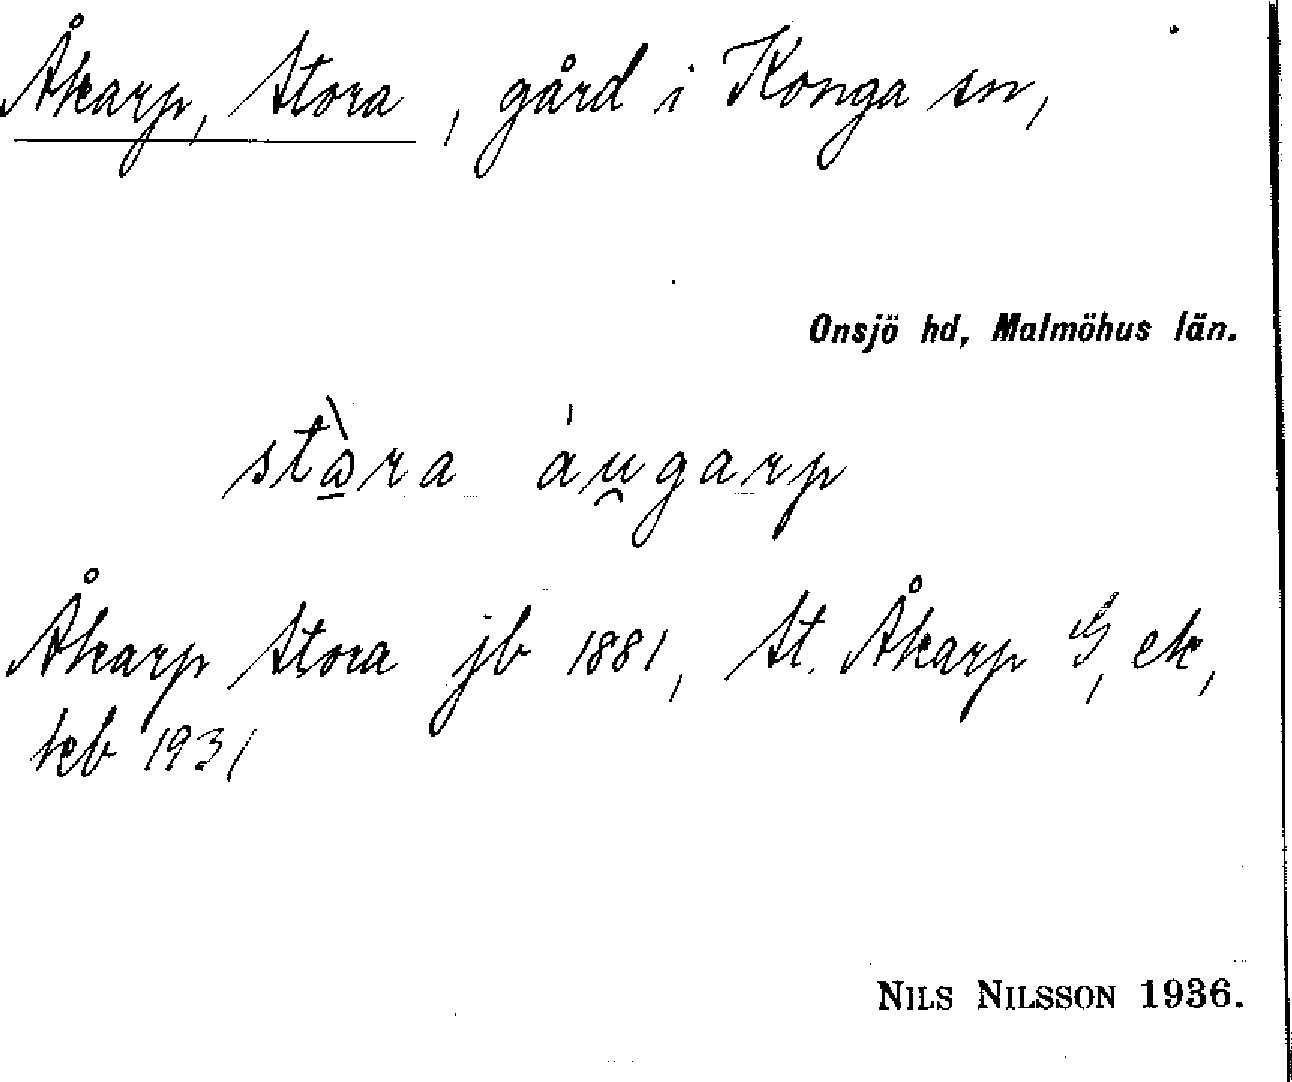 Åkarp, Stora, gård i Konga sn,
Onsjö hd, Malmöhus län.
stò̱ra áu̯garp
Åkarp Stora jb 1881, St. Åkarp G, ek,
kb 1931
NILS NILSSON 1936.